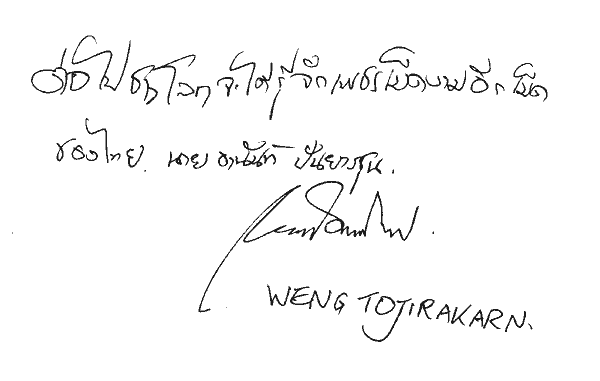 ต่อไปชาวโลกจะได้รู้จักเพชรเม็ดงามอีกเม็ด
ของไทย. นาย อานันท์ ปันยารชุน.
WENG TOJIRAKARN.